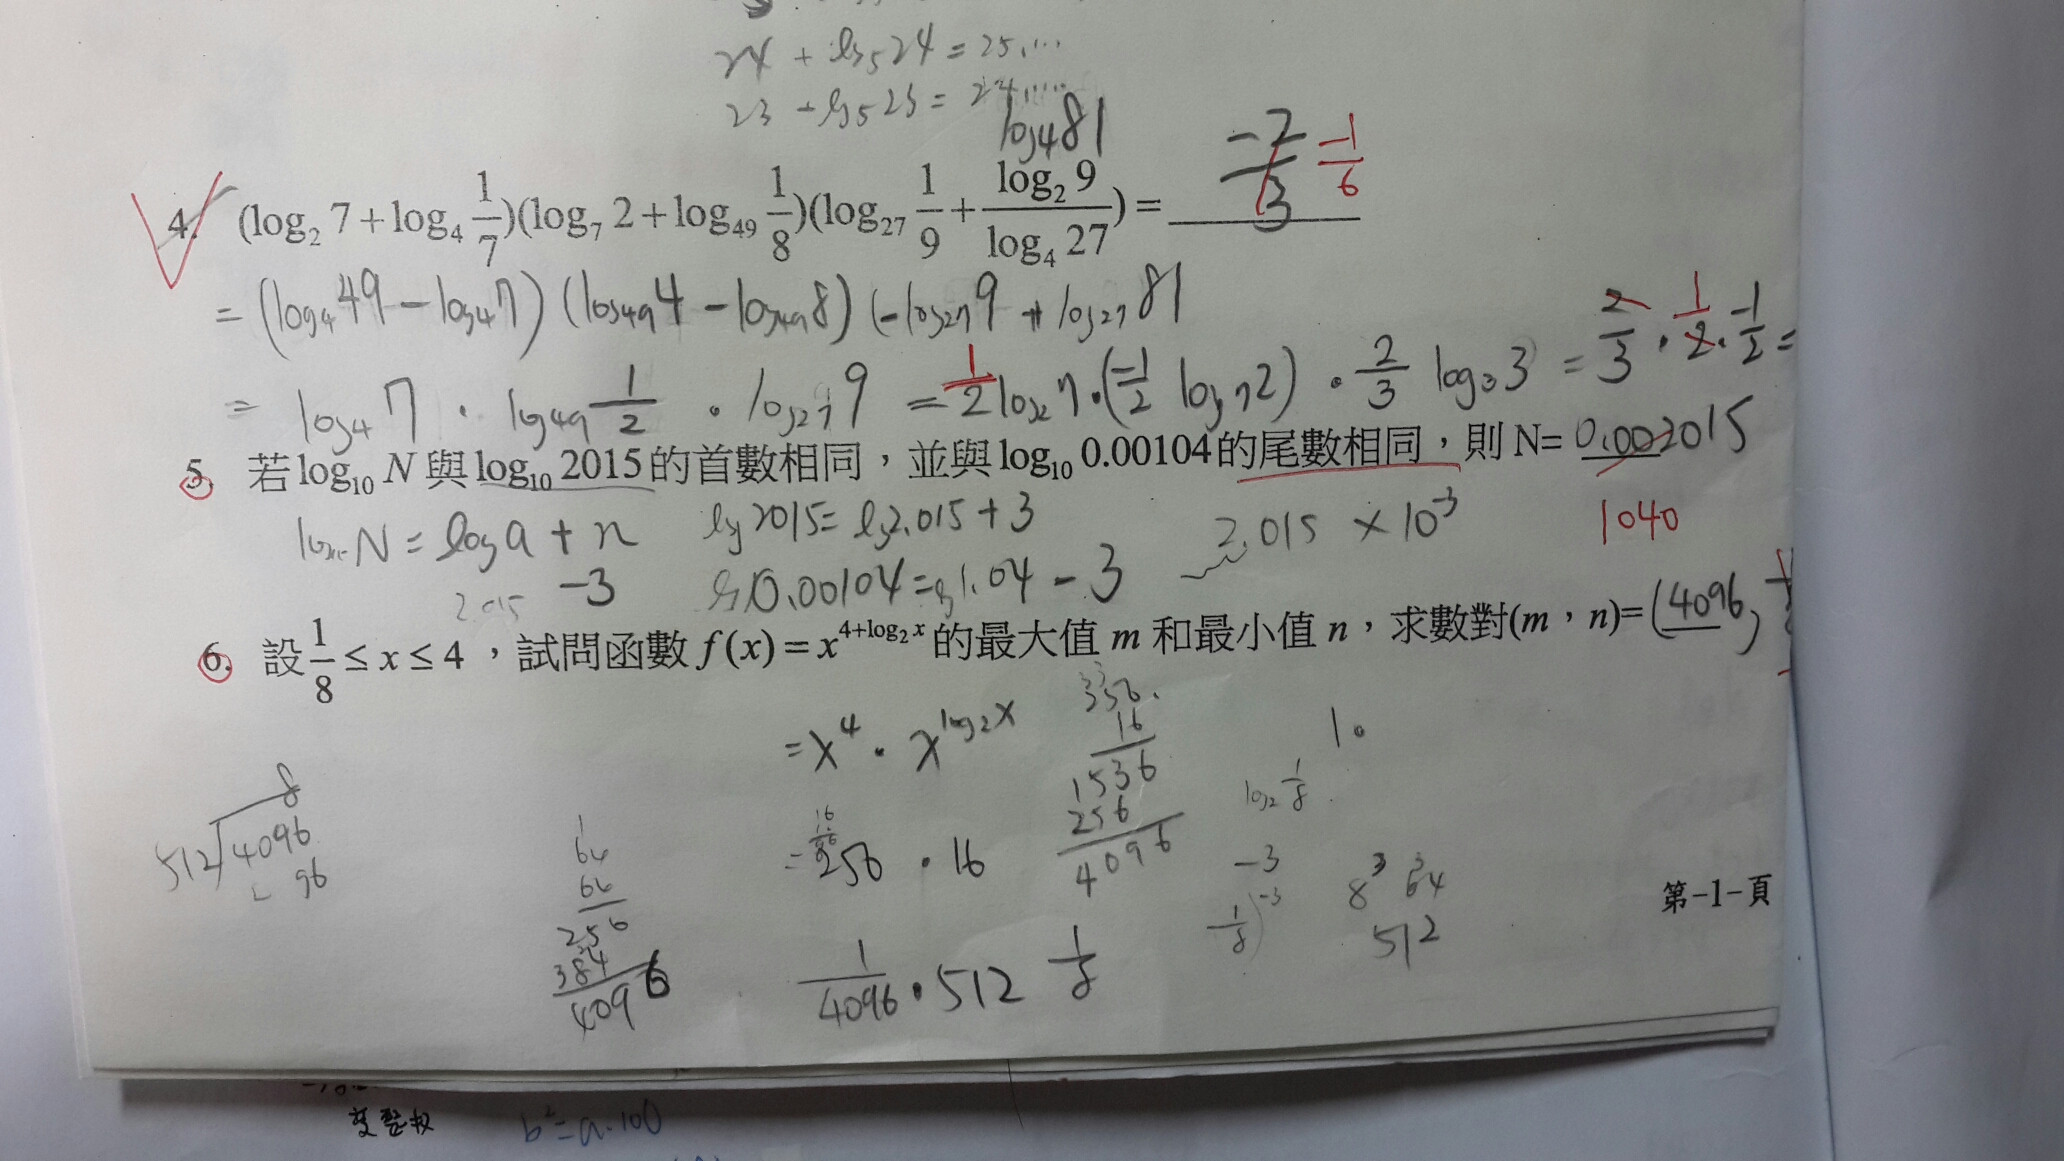 24 + log₅24 = 25....
23 + log₅23 = 24.....
log₄81
4. (log₂ 7 + log₄ 1/7)(log₇ 2 + log₄₉ 1/8)(log₂₇ 1/9 + log₂ 9 / log₄ 27) = -2/3 -1/6
= (log₄49 - log₄7) (log₄₉4 - log₄₉8) (-log₂₇9 + log₂₇81
= log₄7 · log₄₉ 1/2 · log₂₇9 = 1/2 log₂7 · (-1/2 log₇2) · 2/3 log₃3 = 2/3 · 1/2 · -1/2 =
5. 若 log₁₀ N 與 log₁₀ 2015 的首數相同,並與 log₁₀ 0.00104 的尾數相同,則 N= 0.002015
1040
N = log a + n
log 2015 = log 2.015 + 3
2.015 × 10⁻³
2.015 -3
log 0.00104 = log 1.04 - 3
6. 設 1/8 ≤ x ≤ 4 ,試問函數 f(x) = x^(4+log₂ x) 的最大值 m 和最小值 n,求數對(m,n)= (4096,
= x⁴ · x^(log₂x)
16
1536
256
4096
1.
log₂ 1/8
8
512 4096
96
64
64
256
384
4096
= 256 · 16
-3
(1/8)⁻³
8³ 64
512
1/4096 · 512 1/8
第-1-頁
變整數
b²=a·100